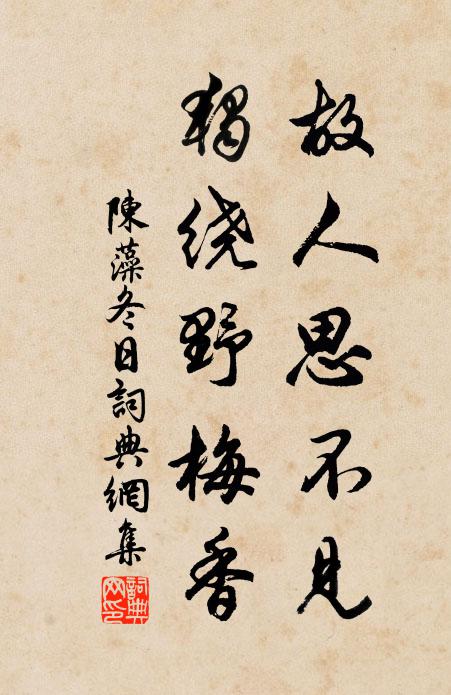 故人思不见
独绕野梅香
陳藻冬日詞典網集
詞典网印